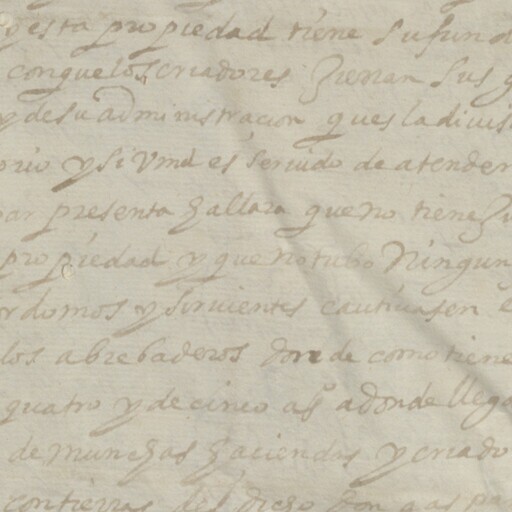 y esta propiedad tiene su fund
con que los criadores Zierran sus g
y de su administracion ques la divis
orio y si Vmd es servido de atender
ar presenta hallara que no tiene
propiedad y que no tubo Ningun
rdomos y sirvientes cautivasen e
los abrebaderos donde como tiene
quatro y de cinco as a donde llega
de munchas haciendas y criado
con tierras del dicho Don